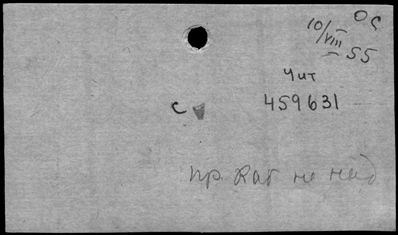 ОС
10/VIII 55
Чит
с 459631
пр. Каб не над